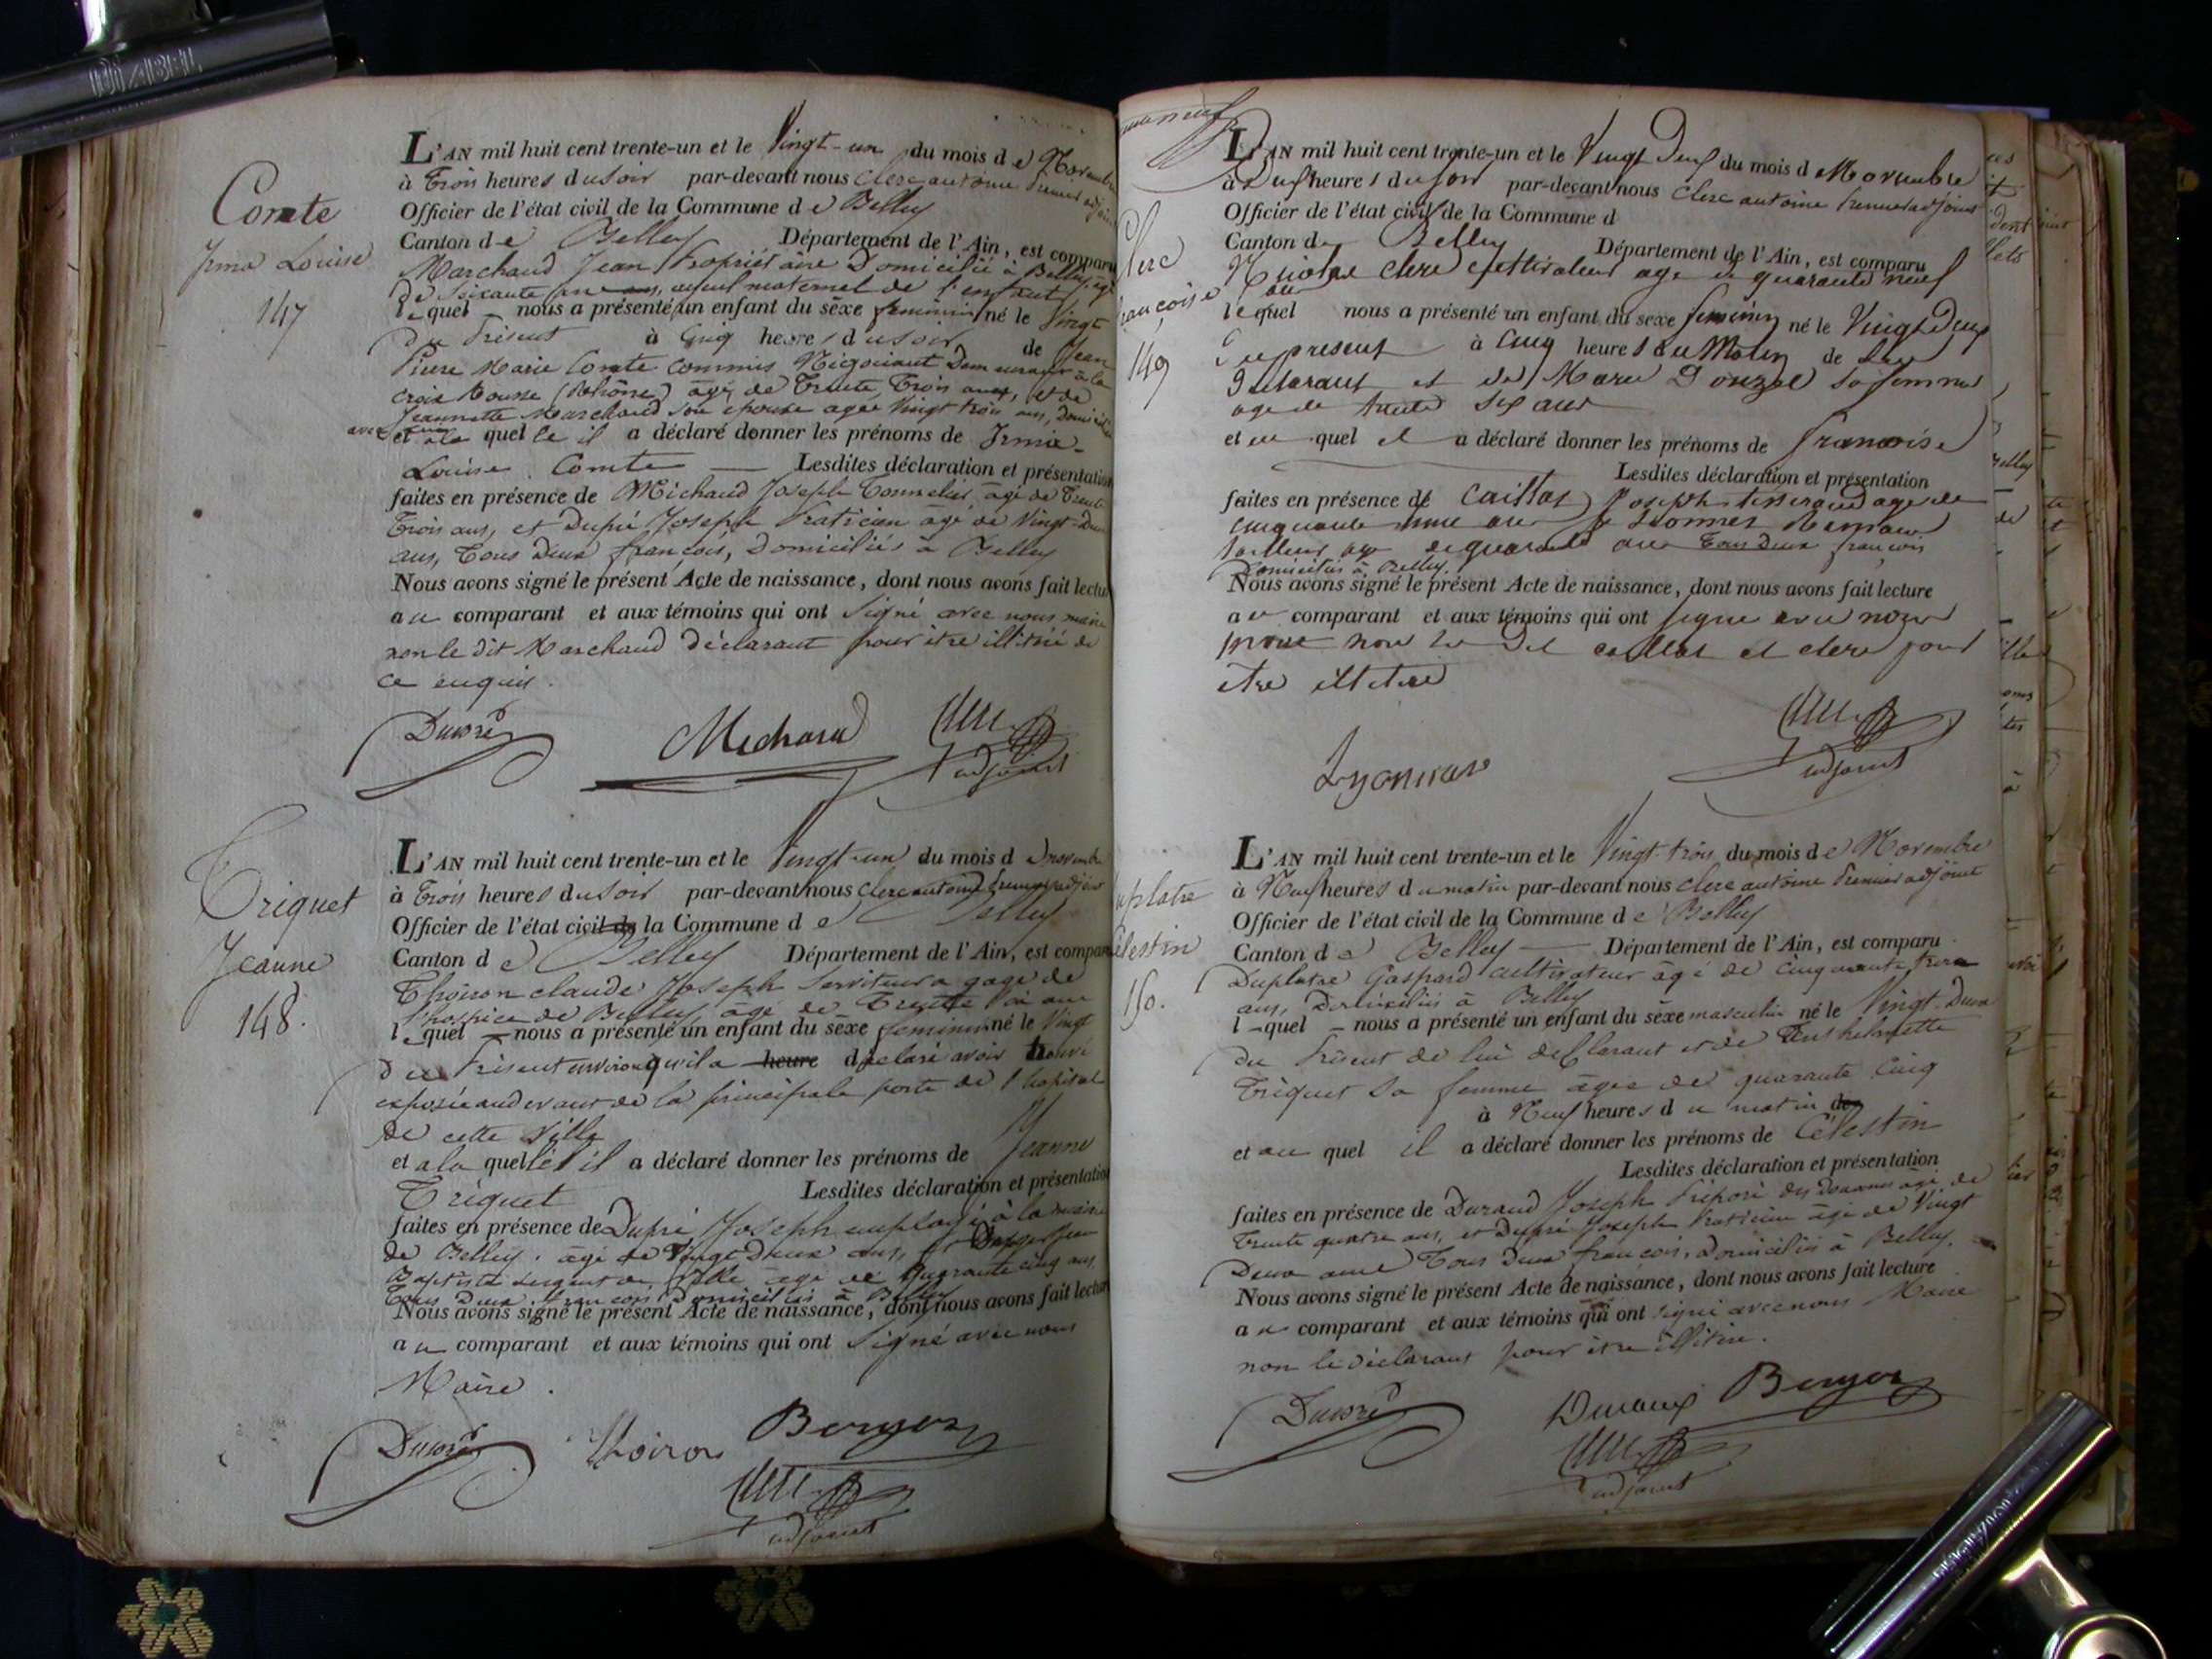 Comte
Irma Louise
147
L'AN mil huit cent trente-un et le Vingt-un du mois de Novembre
à Trois heures du Soir par-devant nous Clerc antoine Premier adjoint
Officier de l'état civil de la Commune de Belley
Canton de Belley Département de l'Ain, est comparu
Marchand Jean Propriétaire Domicilié à Belley, âgé
de Soixante ans, ayeul maternel de l'enfant,
lequel nous a présenté un enfant du sexe feminin né le Vingt
Du Présent à Cinq heures du soir de Jean
Pierre Marie Comte commis Négociant Demeurant à la
croix Rousse (Rhône) âgé de Trente Trois ans, et de
Jeannette Marchand son épouse agée Vingt trois ans, Domiciliée
avec lui
et à la quelle il a déclaré donner les prénoms de Irma-
Louise Comte Lesdites déclaration et présentation
faites en présence de Michaud Joseph Tonnelier, âgé de Trente
Trois ans, et Dupré Joseph Praticien âgé de Vingt-Deux
ans, Tous Deux français, Domiciliés à Belley
Nous avons signé le présent Acte de naissance, dont nous avons fait lecture
au comparant et aux témoins qui ont Signé avec nous maire
non le dit Marchand Déclarant pour être illitéré de
ce enquis.
Dupré Michaud Clerc
adjoint
Triquet
Jeanne
148.
L'AN mil huit cent trente-un et le Vingt-un du mois de novembre
à Trois heures du Soir par-devant nous clerc antoine Premier adjoint
Officier de l'état civil de la Commune de Belley
Canton de Belley Département de l'Ain, est comparu
Thoiron claude Joseph Serviteur a gage de
l'hospice de Belley, âgé de Trente ans
lequel nous a présenté un enfant du sexe feminin né le Vingt
du Présent environ qu'il a heure déclaré avoir trouvé
exposée au devant de la principale porte de l'hopital
de cette Ville
et à la quelle il a déclaré donner les prénoms de Jeanne
Triquet Lesdites déclaration et présentation
faites en présence de Dupré Joseph employé à la mairie
de Belley, âgé de Vingt Deux ans, et Jean
Baptiste Sergent de Ville âgé de Quarante cinq ans,
Tous Deux français Domiciliés à Belley
Nous avons signé le présent Acte de naissance, dont nous avons fait lecture
au comparant et aux témoins qui ont Signé avec nous
Maire.
Dupré Thoiron Berger
Clerc
adjoint
Clerc
françoise
149
L'AN mil huit cent trente-un et le Vingt Deux du mois de Novembre
à Deux heures du Soir par-devant nous Clerc antoine Premier adjoint
Officier de l'état civil de la Commune d
Canton de Belley Département de l'Ain, est comparu
Nicolas clerc cultivateur age de quarante neuf
ans
lequel nous a présenté un enfant du sexe feminin né le Vingt Deux
Du present à Cinq heures du Matin de lui
Déclarant et de Marie Donzel sa femme
age de trente six ans
et au quel il a déclaré donner les prénoms de francoise
Lesdites déclaration et présentation
faites en présence de Caillat Joseph tisserand age de
cinquante ans
tailleur age de quarante ans Tous Deux francois
Domiciliés à Belley.
Nous avons signé le présent Acte de naissance, dont nous avons fait lecture
au comparant et aux témoins qui ont signé avec nous
maire non le dit caillat et clerc pour
etre illitere
Lyonnas Clerc
adjoint
Duplatre
Célestin
150.
L'AN mil huit cent trente-un et le Vingt-trois du mois de Novembre
à Neuf heures du matin par-devant nous clerc antoine Premier adjoint
Officier de l'état civil de la Commune de Belley
Canton de Belley Département de l'Ain, est comparu
Duplatre Gaspard cultivateur âgé de Cinquante trois
ans, Domicilié à Belley
lequel nous a présenté un enfant du sexe masculin né le Vingt-Deux
du Présent de lui déclarant et de Anthelmette
Triquet sa femme âgée de quarante Cinq
à Neuf heures du matin de
et au quel il a déclaré donner les prénoms de Célestin
Lesdites déclaration et présentation
faites en présence de Durand Joseph Préposé des Douanes âgé de
Trente quatre ans, et Dupré Joseph Praticien âgé de Vingt
Deux ans Tous Deux francois, Domiciliés à Belley.
Nous avons signé le présent Acte de naissance, dont nous avons fait lecture
au comparant et aux témoins qui ont signé avec nous Maire
non le déclarant pour être illitéré.
Dupré Durand Berger
Clerc
adjoint